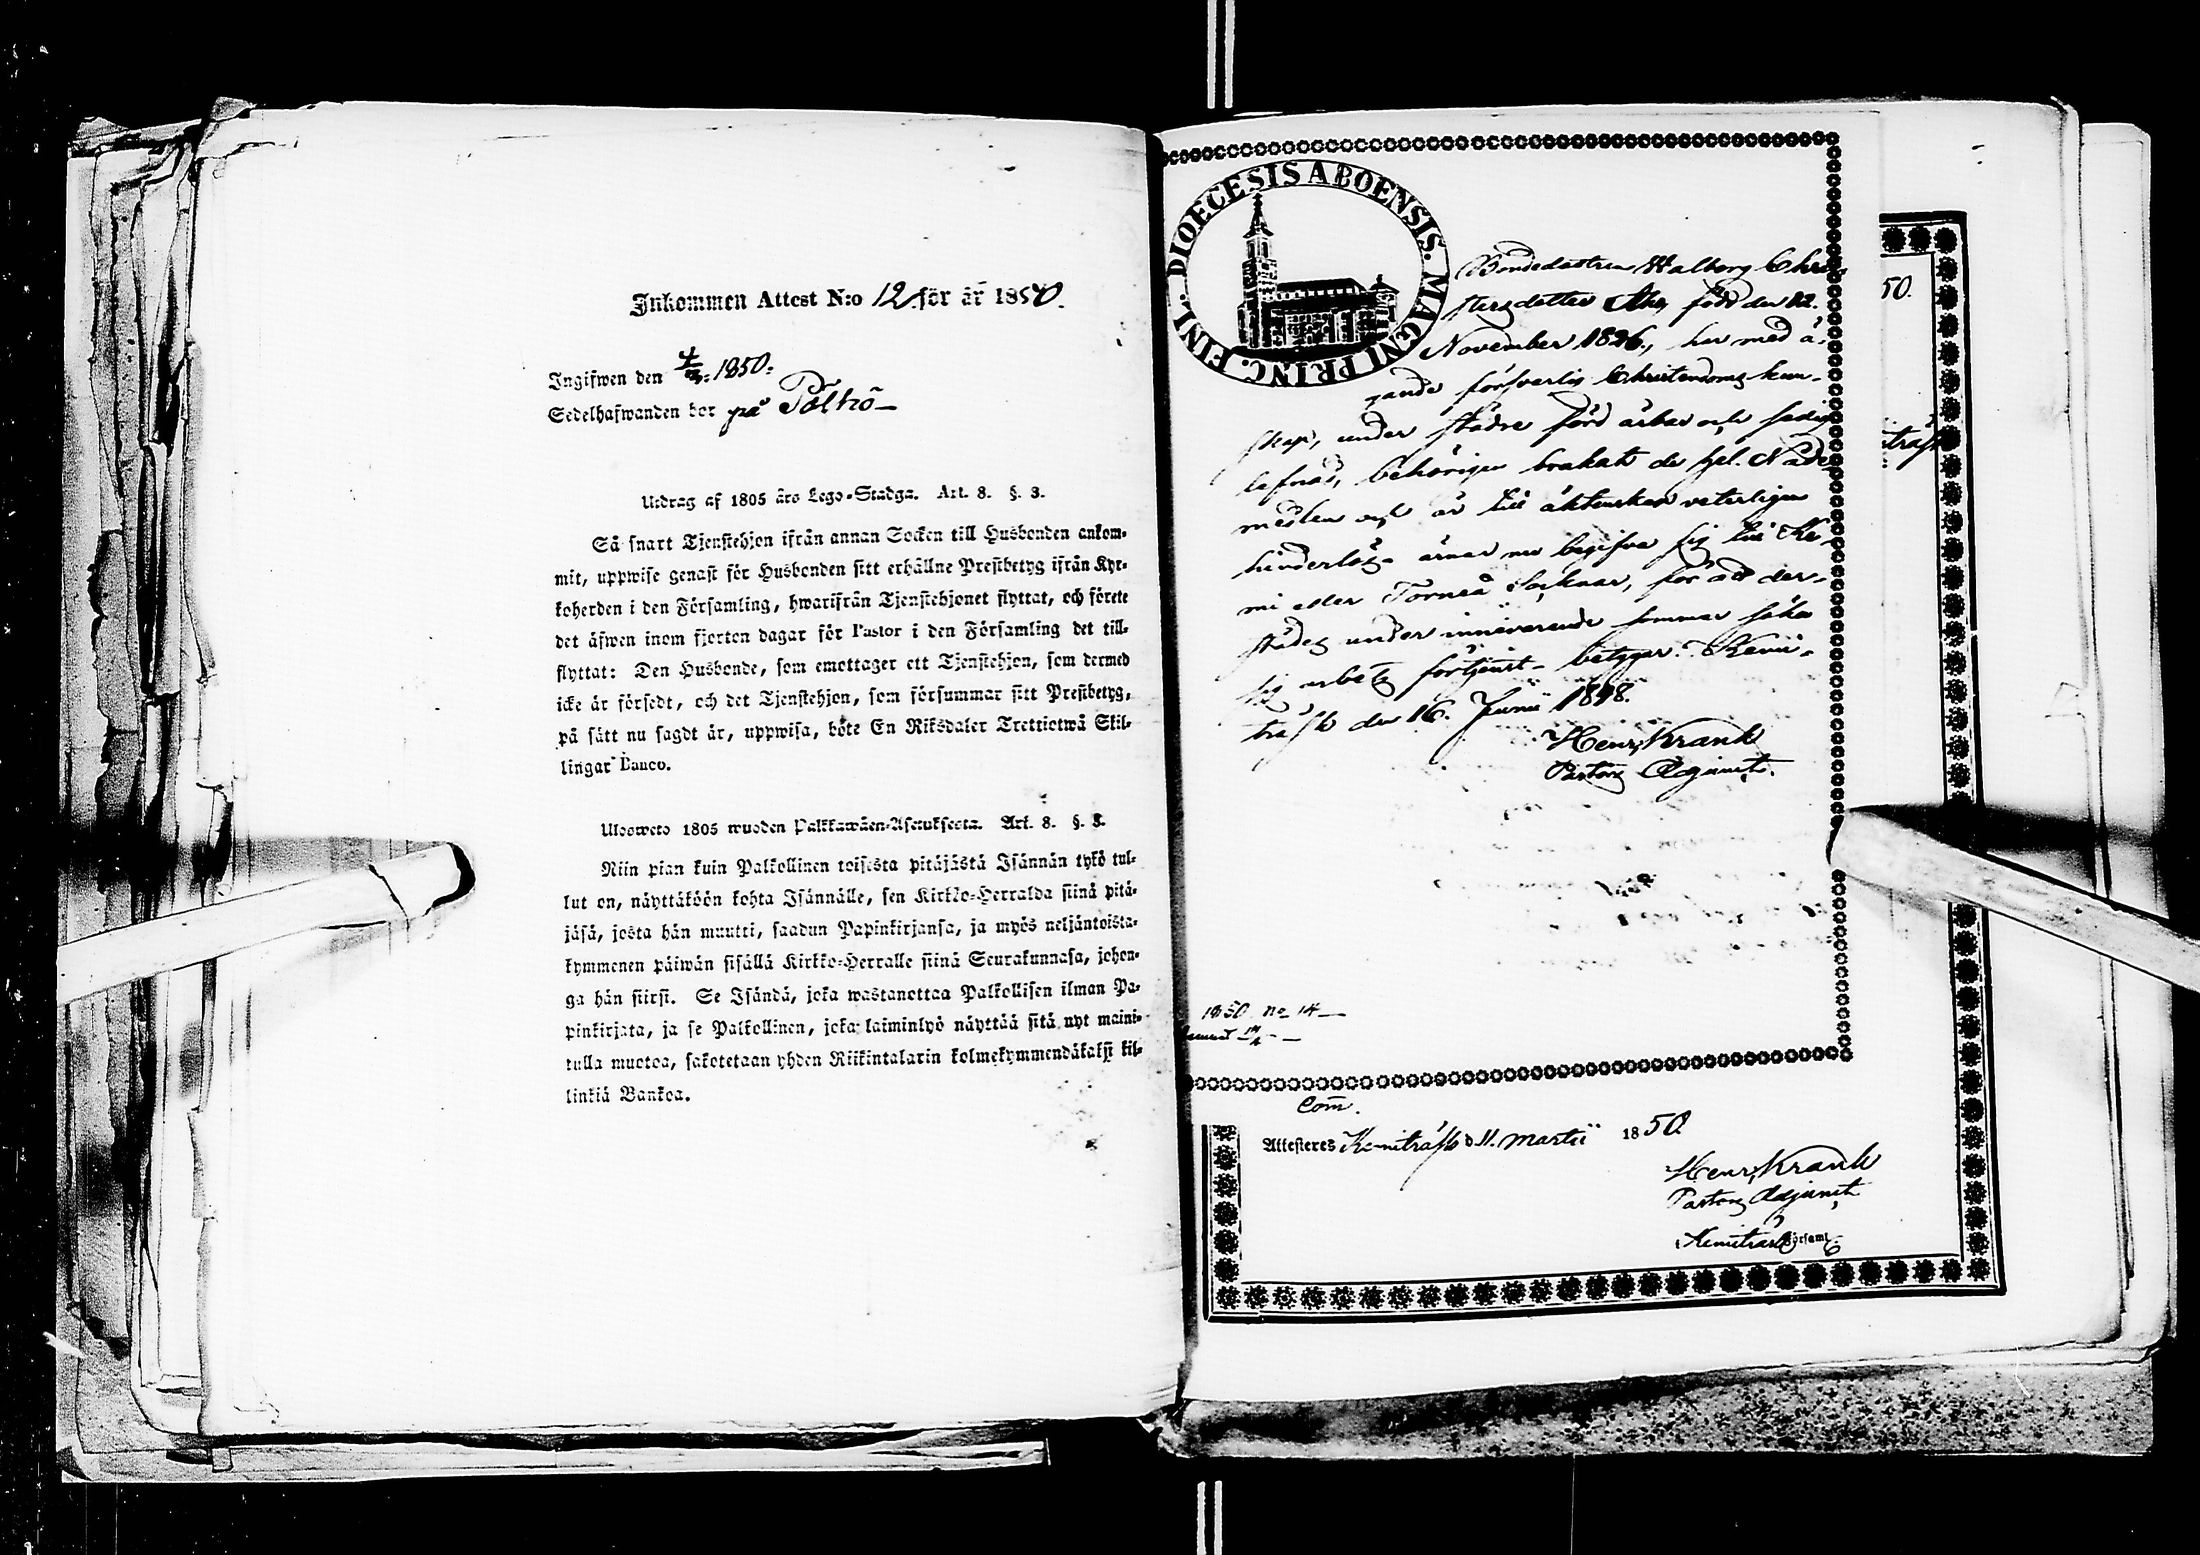 Inkommen Attest N:o 12 för år 1850.
Ingifwen den 4/3 1850.
Sedelhafwanden bor på Pölhö
Utdrag af 1805 års Lego-Stadga. Art. 8. §. 3.
Så snart Tjenstehjon ifrån annan Socken till Husbonden ankom-
mit, uppwise genast för Husbonden sitt erhållne Prestbetyg ifrån Kyr-
koherden i den Församling, hwarifrån Tjenstehjonet flyttat, och förete
det äfwen inom fjorton dagar för Pastor i den Församling det till-
flyttat: Den Husbonde, som emottager ett Tjenstehjon, som dermed
icke är försedt, och det Tjenstehjon, som försummar sitt Prestbetyg,
på sätt nu sagdt är, uppwisa, böte En Riksdaler Trettiotwå Skil-
lingar Banco.
Ulosweto 1805 wuoden Palkkawäen-Asetuksesta. Art. 8. §. 3.
Niin pian kuin Palkollinen toisesta pitäjästä Isännän tykö tul-
lut on, näyttäköön kohta Isännälle, sen Kirkko-Herralda siinä pitä-
jäsä, josta hän muutti, saadun Papinkirjansa, ja myös neljäntoista-
kymmenen päiwän sisällä Kirkko-Herralle siinä Seurakunnasa, johon-
ga hän siirsi. Se Isändä, joka wastanottaa Palkollisen ilman Pa-
pinkirjata, ja se Palkollinen, joka laiminlyö näyttää sitä nyt maini-
tulla muotoa, sakotetaan yhden Riikintalarin kolmekymmendäkaksi kil-
linkiä Bankoa.
DIOECESIS ABOENSIS. MAGNI PRINC. FINL.
Bondedottren Walborg Chri-
stersdotter född den 12.
November 1826, har med ä-
gande försvarlig Christendoms kun-
skap, under städse förd ärbar och sedig
lefnad, behörigen brukat de hel. Nåde
medlen och är till äktenskap veterligen
hinderlös, ärnar nu begifva sig till Ke-
mi eller Torneå Socknar, för att der-
städes under innevarande sommar söka
sig arbets förtjenst, betygar. Kemi-
träsk den 16. Junii 1848.
Henr. Krank
Pastors Adjunct.
1850 no 14
50.
träsk
Com.
Attesteres Kemiträsk d 11. Martii 1850.
Henr. Krank
Pastors Adjunct
Kemiträsk Församl.